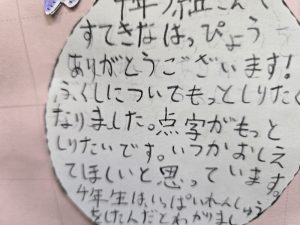 年 組さん
すてきなはっぴょう
ありがとうございます!
ふくしについてもっとしりたく
なりました。点字がもっと
しりたいです。いつかおしえ
てほしいと思っています。
4年生は、いっぱいれんしゅう
をしたんだとわかりまし